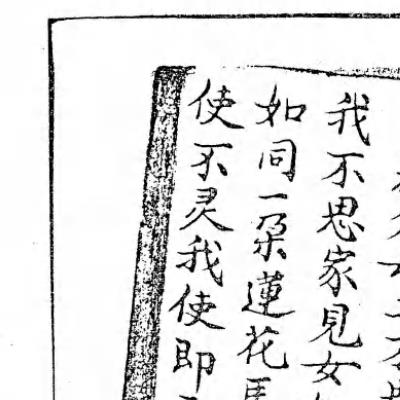 我不思家見女
如同一朵蓮花
使不灵我使即